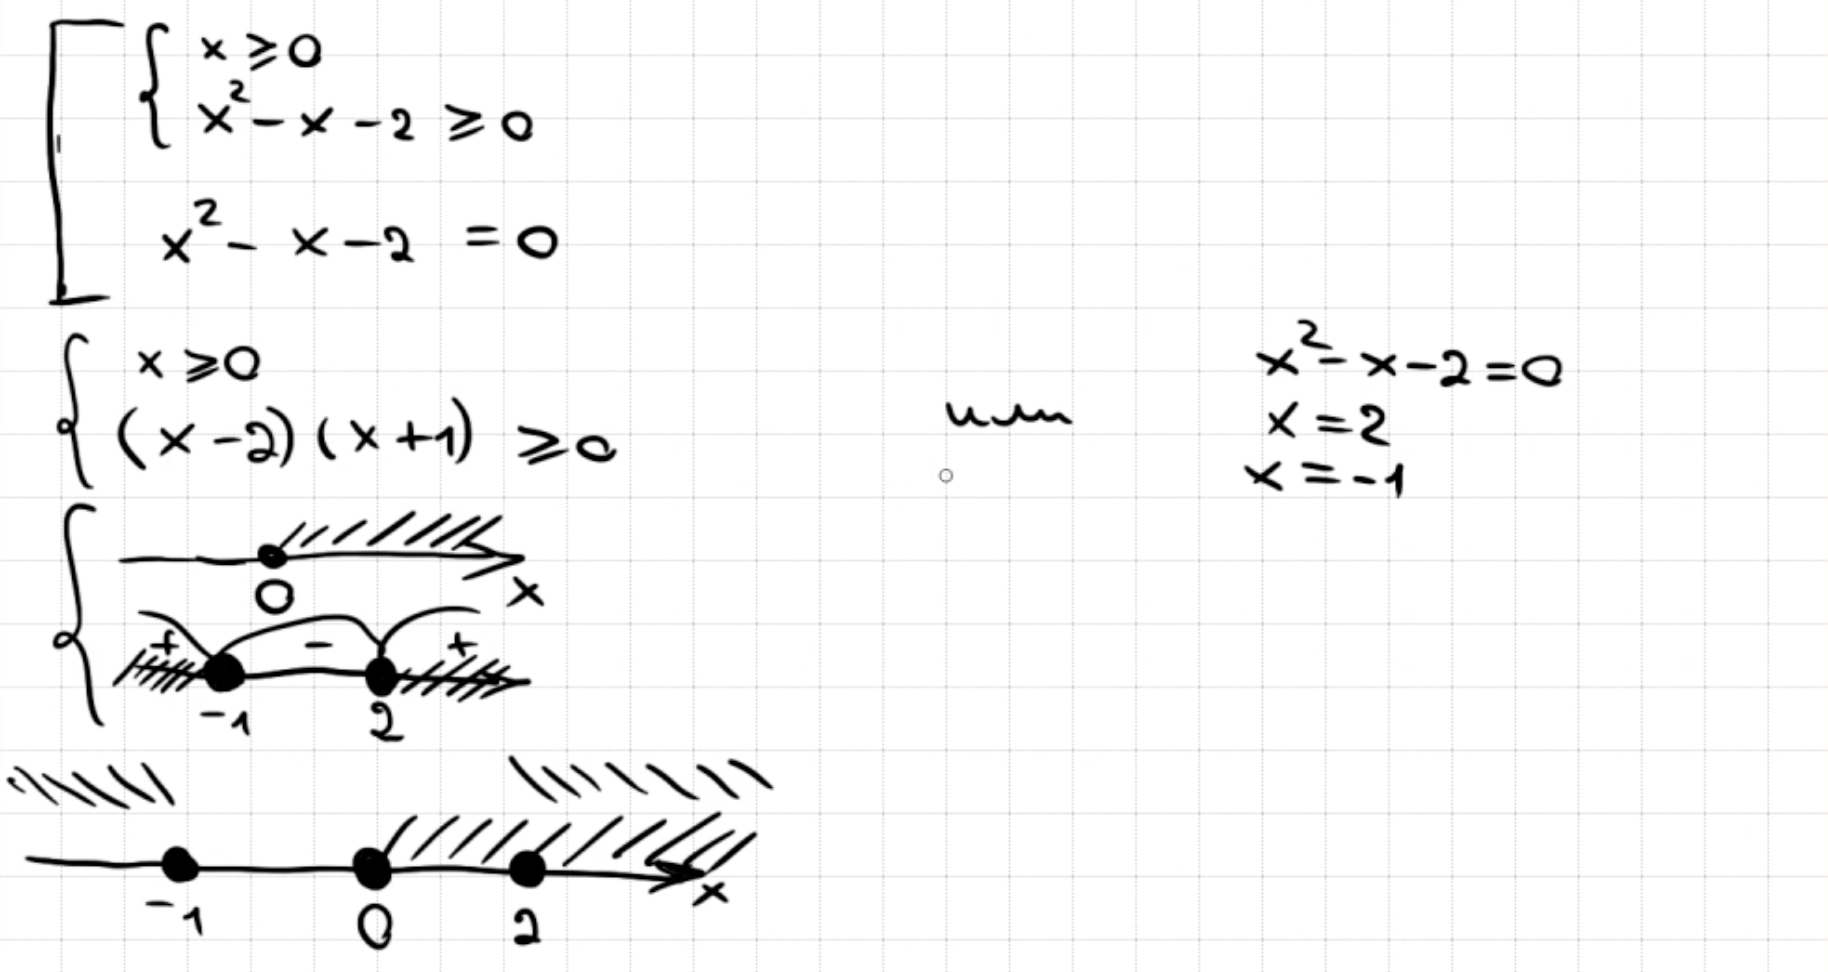 x ≥ 0
x² - x - 2 ≥ 0
x² - x - 2 = 0
x ≥ 0
(x - 2)(x + 1) ≥ 0
или
x² - x - 2 = 0
x = 2
x = -1
0 x
+ - +
-1 2
-1 0 2 x